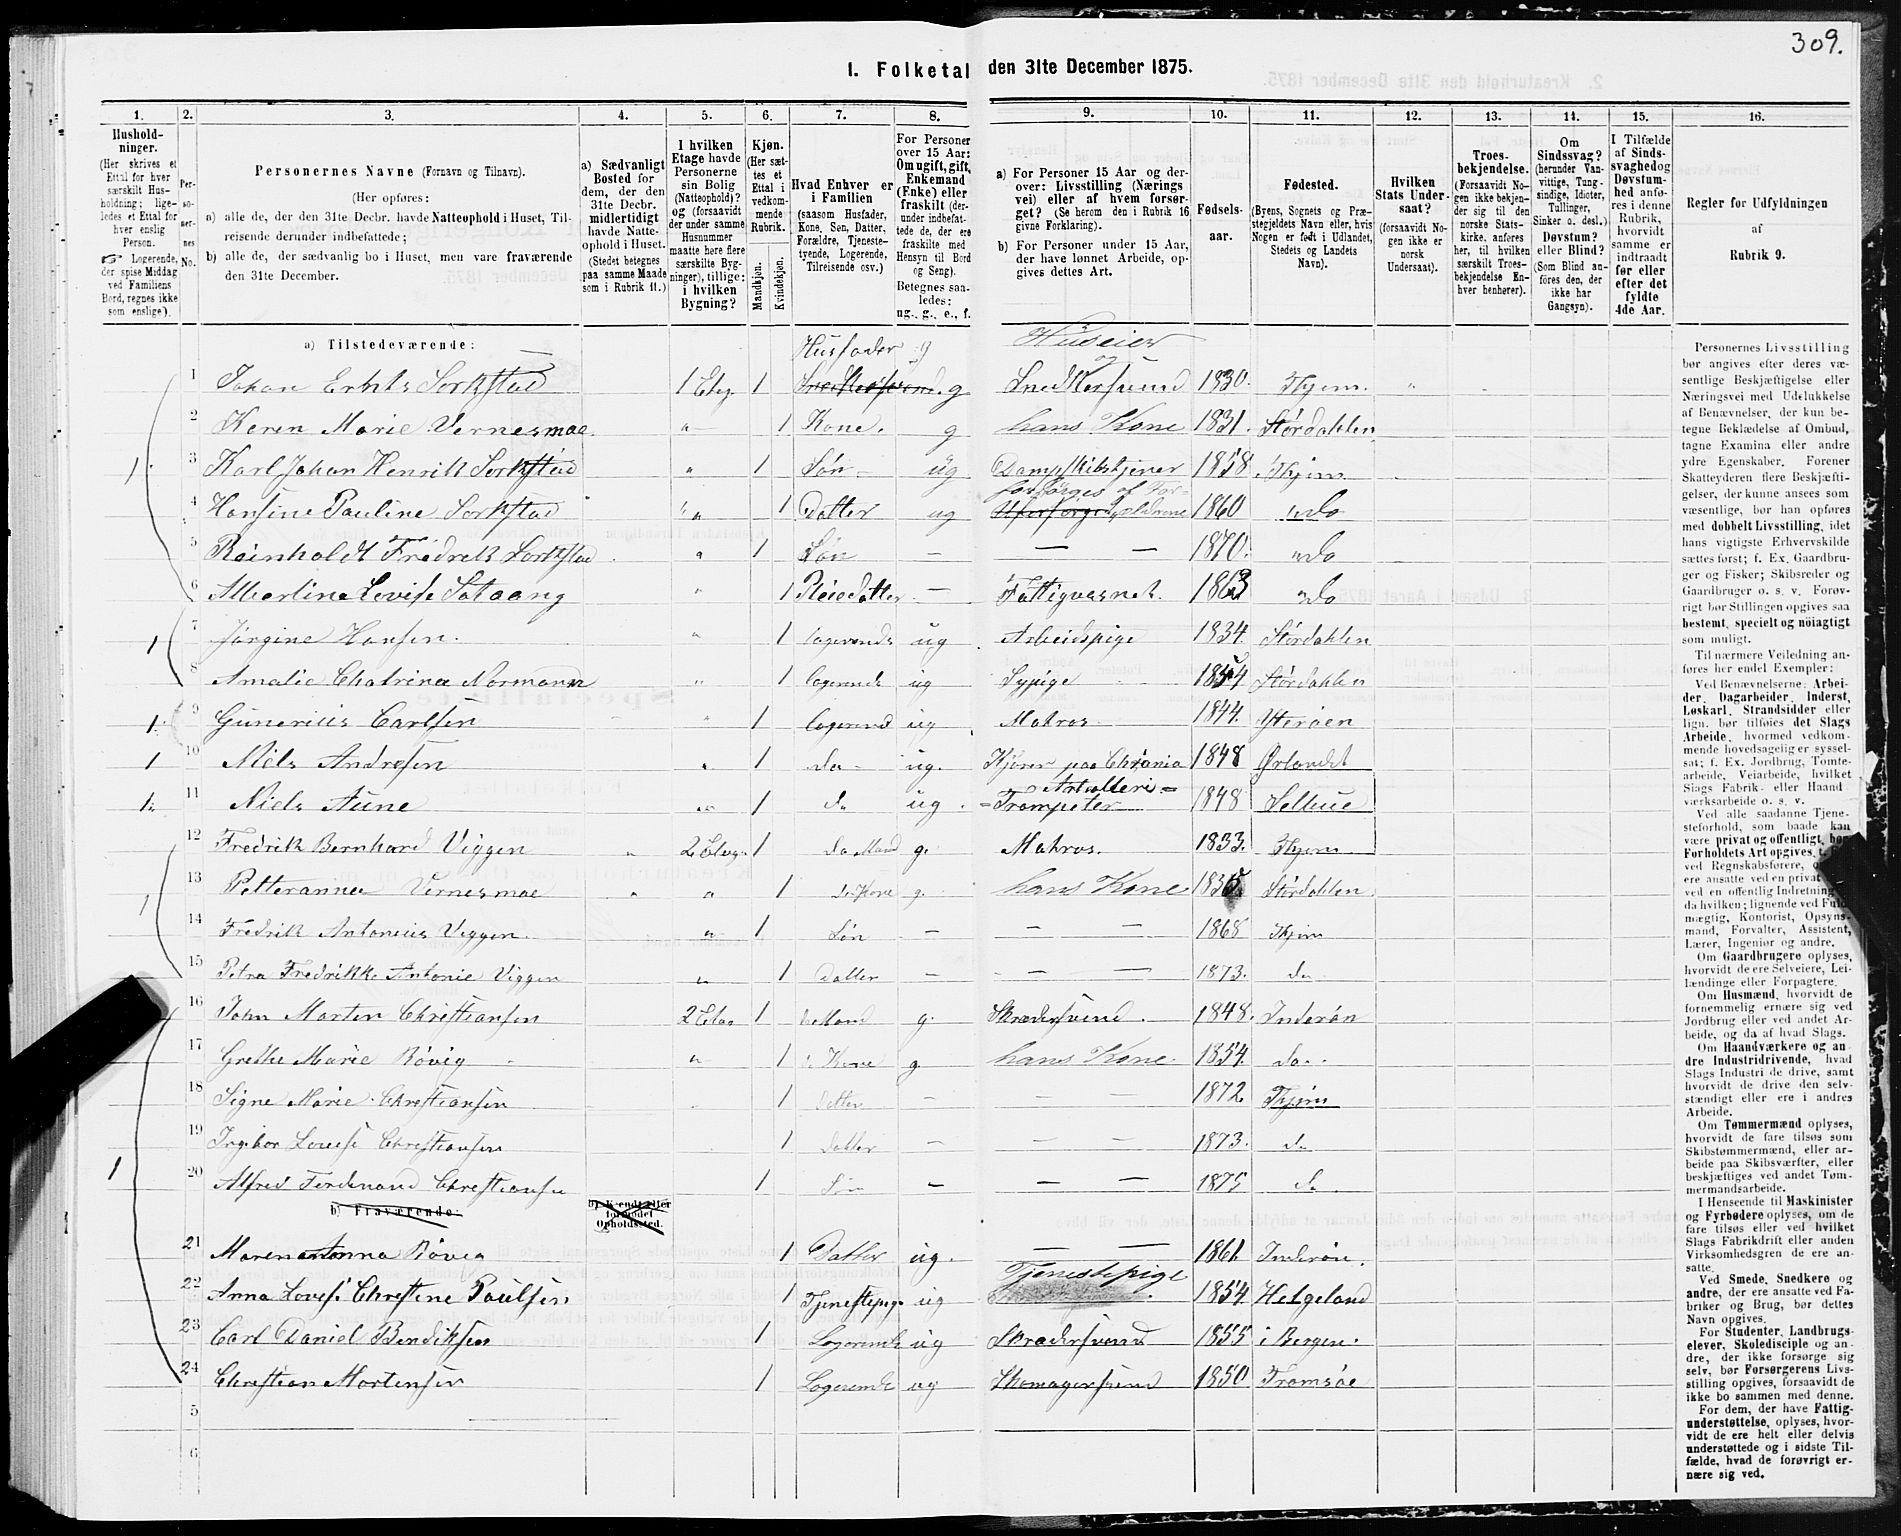 309.
1. Folketal den 31te December 1875.
1. 2. 3. 4. 5. 6. 7. 8. 9. 10. 11. 12. 13. 14. 15. 16.
Husholdninger. (Her skrives et Ettal for hver særskilt Husholdning; ligeledes et Ettal for hver enslig Person. Logerende, der spise Middag ved Familiens Bord, regnes ikke som enslige).
Personernes No.
Personernes Navne (Fornavn og Tilnavn).
(Her opføres:
a) alle de, der den 31te Decbr. havde Natteophold i Huset, Tilreisende derunder indbefattede;
b) alle de, der sædvanlig bo i Huset, men vare fraværende den 31te December.
a) Sædvanligt Bosted for dem, der den 31te Decbr. midlertidigt havde Natteophold i Huset. (Stedet betegnes paa samme Maade som i Rubrik 11.)
I hvilken Etage havde Personerne sin Bolig (Natteophold)? og (forsaavidt der under samme Husnummer maatte høre flere særskilte Bygninger), tillige: i hvilken Bygning?
Kjøn. (Her sættes et Ettal i vedkommende Rubrik.
Mandkjøn. Kvindekjøn.
Hvad Enhver er i Familien (saasom Husfader, Kone, Søn, Datter, Forældre, Tjenestetyende, Logerende, Tilreisende osv.)
For Personer over 15 Aar: Om ugift, gift, Enkemand (Enke) eller fraskilt (derunder indbefattede de, der ere fraskilte med Hensyn til Bord og Seng). Betegnes saaledes: ug., g., e., f.
a) For Personer 15 Aar og derover: Livsstilling (Næringsvei) eller af hvem forsørget? (Se herom den i Rubrik 16 givne Forklaring).
b) For Personer under 15 Aar, der have lønnet Arbeide, opgives dettes Art.
Fødselsaar.
Fødested. (Byens, Sognets og Præstegjeldets Navn eller, hvis Nogen er født i Udlandet, Stedets og Landets Navn).
Hvilken Stats Undersaat? (forsaavidt Nogen ikke er norsk Undersaat).
Troesbekjendelse. (Forsaavidt Nogen ikke bekjender sig til den norske Statskirke, anføres her, til hvilken særskilt Troesbekjendelse Enhver henhører).
Om Sindssvag? (herunder Vanvittige, Tungsindige, Idioter, Tullinger, Sinker o. desl.) Døvstum? eller Blind? (Som Blind anføres den, der ikke har Gangsyn).
I Tilfælde af Sindssvaghed og Døvstumhed anføres i denne Rubrik, hvorvidt samme er indtraadt før eller efter det fyldte 4de Aar.
Regler for Udfyldningen af Rubrik 9.
a) Tilstedeværende: Husfader g Huseier og
1 Johan Erhts Sorkstad 1 Etg. 1 g Snedkersvend 1830. Thjem. "
2 Karen Marie Vernesmoe " 1 Kone. g hans Kone 1831. Størdahlen
1. 3 Karl Johan Henrik Sorkstad " 1 Søn ug Dampskibstjener 1858 Thjem
forsørges af For=
4 Hansine Pauline Sorkstad " 1 Datter ug ældrene 1860 do
5 Reinholdt Fredrik Sorkstad " 1 Søn — — — 1870. do
6 Albertine Lovise Sataang " 1 Pleiedatter — Fattigvæsnet. 1863 do
1 7 Jørgine Hansen. " 1 Logerende ug Arbeidspige 1834. Størdahlen
8 Amalie Chatrina Normann " 1 Logerende ug Sypige 1854 Størdahlen
1. 9 Gunerius Carlsen " 1 Logerend ug Matros 1844. Ytterøen
1 10 Niels Andresen " 1 do ug. Kjører paa Chrania 1848 Ørlandet
Artolleri=
1. 11 Niels Aune " 1 do ug. =Trompeter 1848 Selbue
12 Fredrik Bernhard Viggen " 2 Etag 1 do Mand g. Matros. 1833. Thjem
1 13 Petteranna Vernesmoe " " 1 do Kone g. hans Kone 1835 Størdahlen
14 Fredrik Antonius Viggen. " 1 Søn — — — 1868 Thjem
15 Petra Fredrikke Antonie Viggen " 1 Datter — — — 1873. do
16 John Morten Christiansen 2 Etag 1 do Mand g. Skrædersvend. 1848. Inderøn
17 Grethe Marie Røvig " 1 Kone g. hans Kone. 1854. do.
18 Signe Marie Christiansen 1 Datter — — — 1872. Thjem
19 Ingebor Lovise Christiansen 1 Datter — — — 1873. do
1 20 Alfred Ferdenand Christiansen 1 Søn — — — 1875 do
b) Fraværende: b) Kjendt eller formodet Opholdssted.
21 Maren Anna Røvig 1 Datter ug. — — 1861 Inderøn.
Tjenestepige
22 Anna Lovise Christine Poulsen 1 Tjenestepige ug 1854. Helgeland
23 Carl Daniel Bendiksen 1 Logerende ug Skrædersvend 1855 i Bergen.
24 Christian Mortensen 1 Logerende ug Skomagersvend 1850 Tromsøe
5
6
Personernes Livsstilling
bør angives efter deres væsentlige Beskjæftigelse eller
Næringsvei med Udelukkelse
af Benævnelser, der kun betegne Beklædelse af Ombud,
tagne Examina eller andre
ydre Egenskaber. Forener
Skatteyderen flere Beskjæftigelser, der kunne ansees som
væsentlige, bør han opføres
med dobbelt Livsstilling, idet
hans vigtigste Erhvervskilde
sættes først; f. Ex. Gaardbruger og Fisker; Skibsreder og
Gaardbruger o. s. v. Forøvrigt bør Stillingen opgives saa
bestemt, specielt og nøiagtigt
som muligt.
Til nærmere Veiledning anføres her endel Exempler:
Ved Benævnelserne: Arbeider, Dagarbeider, Inderst,
Løskarl, Strandsidder eller
lign. bør tilføies det Slags
Arbeide, hvormed vedkommende hovedsagelig er sysselsat; f. Ex. Jordbrug, Tomtearbeide, Veiarbeide, hvilket
Slags Fabrik- eller Haandværksarbeide o. s. v.
Ved alle saadanne Tjenesteforhold, som baade kan
være privat og offentligt, bør
Forholdets Art opgives,
ved Regnskabsførere,
ere ansatte ved en privat
ved en offentlig Indretning
da hvilken; lignende ved Fuldmægtig, Kontorist, Opsynsmand, Forvalter, Assistent,
Lærer, Ingeniør og andre.
Om Gaardbrugere oplyses,
hvorvidt de ere Selveiere, Leilændinge eller Forpagtere.
Om Husmænd, hvorvidt de
fornemmelig ernære sig ved
Jordbrug eller ved andet Arbeide, og da af hvad Slags.
Om Haandværkere og andre Industridrivende, hvad
Slags Industri de drive, samt
hvorvidt de drive den selvstændigt eller ere i andres
Arbeide.
Om Tømmermænd oplyses,
hvorvidt de fare tilsøs som
Skibstømmermænd, eller arbeide paa Skibsværfter, eller
beskjæftiges ved andet Tømmermandsarbeide.
I Henseende til Maskinister
og Fyrbødere oplyses, om de
fare tilsøs eller ved hvilket
Slags Fabrikdrift eller anden
Virksomhedsgren de ere ansatte.
Ved Smede, Snedkere og
andre, der ere ansatte ved Fabriker og Brug, bør dettes
Navn opgives.
For Studenter, Landbrugselever, Skoledisciple og andre, der ikke forsørge sig
selv, bør Forsørgerens Livsstilling opgives, forsaavidt de
ikke bo sammen med denne.
For dem, der have Fattigunderstøttelse, oplyses, hvorvidt de ere helt eller delvis
understøttede og i sidste Tilfælde, hvad de forøvrigt ernære sig ved.